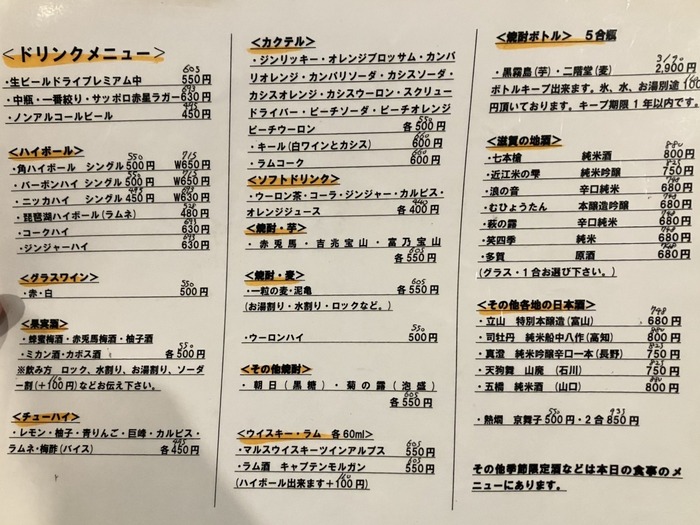 ＜ドリンクメニュー＞
605
・生ビールドライプレミアム中 550円
693
・中瓶・一番絞り・サッポロ赤星ラガー 630円
495
・ノンアルコールビール 450円
＜ハイボール＞
550 715
・角ハイボール シングル500円 W650円
550 715
・バーボンハイ シングル500円 W650円
495 693
・ニッカハイ シングル450円 W630円
528
・琵琶湖ハイボール(ラムネ) 480円
693
・コークハイ 630円
693
・ジンジャーハイ 630円
＜グラスワイン＞
550
・赤・白 500円
＜果実酒＞
・蜂蜜梅酒・赤兎馬梅酒・柚子酒
550
・ミカン酒・カボス酒 各500円
※飲み方 ロック、水割り、お湯割り、ソーダ
110
ー割(＋100円)などお伝え下さい。
＜チューハイ＞
・レモン・柚子・青りんご・巨峰・カルピス・
495
ラムネ・梅酢(バイス) 各450円
＜カクテル＞
・ジンリッキー・オレンジブロッサム・カンパ
リオレンジ・カンパリソーダ・カシスソーダ・
カシスオレンジ・カシスウーロン・スクリュー
ドライバー・ピーチソーダ・ピーチオレンジ
550
ピーチウーロン 各500円
660
・キール(白ワインとカシス) 600円
660
・ラムコーク 600円
＜ソフトドリンク＞
・ウーロン茶・コーラ・ジンジャー・カルピス・
440
オレンジジュース 各400円
＜焼酎・芋＞
・赤兎馬・吉兆宝山・富乃宝山
605
各550円
＜焼酎・麦＞
605
・一粒の麦・泥亀 各550円
(お湯割り・水割り・ロックなど。)
550
・ウーロンハイ 500円
＜その他焼酎＞
・朝日(黒糖)・菊の露(泡盛)
605
各550円
＜ウイスキー・ラム 各60ml＞
605
・マルスウイスキーツインアルプス 550円
605
・ラム酒 キャプテンモルガン 550円
110
(ハイボール出来ます＋100円)
＜焼酎ボトル＞ 5合瓶
3190
・黒霧島(芋)・二階堂(麦) 2,900円
ボトルキープ出来ます。氷、水、お湯別途
円頂いております。キープ期限1年以内です。
＜滋賀の地酒＞
880
・七本槍 純米酒 800円
825
・近江米の雫 純米吟醸 750円
748
・浪の音 辛口純米 680円
748
・むひょうたん 本醸造吟醸 680円
748
・萩の露 辛口純米 680円
748
・笑四季 純米 680円
748
・多賀 原酒 680円
(グラス・1合お選び下さい。)
＜その他各地の日本酒＞
748
・立山 特別本醸造(富山) 680円
880
・司牡丹 純米船中八作(高知) 800円
825
・真澄 純米吟醸辛口一本(長野) 750円
825
・天狗舞 山廃 (石川) 750円
880
・五橋 純米酒 (山口) 800円
550 935
・熱燗 京舞子500円・2合850円
その他季節限定酒などは本日の食事のメ
ニューにあります。